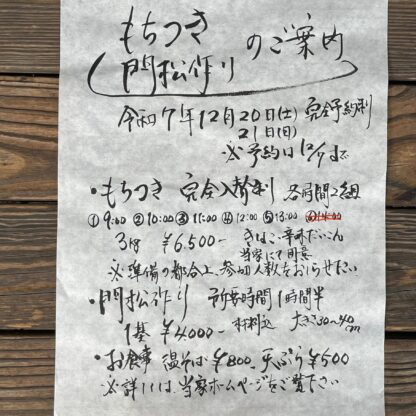 もちつき
門松作り のご案内
令和7年12月20日(土) 完全予約制
21日(日)
※予約は12/1まで
・もちつき 完全入替制 各時間2組
①9:00 ②10:00 ③11:00 ④12:00 ⑤13:00
3kg ¥6,500- きなこ・辛味だいこん
当家にて用意
※準備の都合上、参加人数をおしらせ下さい
・門松作り 所要時間1時間半
1基 ¥4,000- 材料込 大きさ30～40cm
・お食事 温そば ¥800、天ぷら ¥500
※詳しくは、当家ホームページをご覧下さい